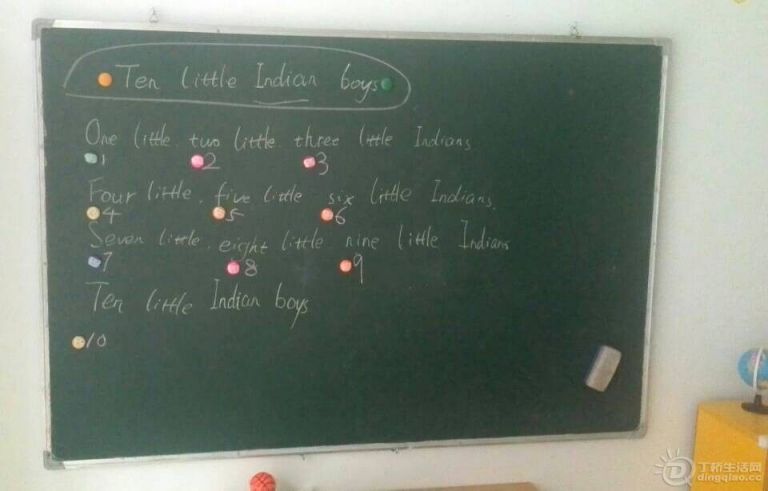 Ten little Indian boys
One little two little three little Indians
1 2 3
Four little, five little six little Indians.
4 5 6
Seven little, eight little nine little Indians
7 8 9
Ten little Indian boys
10
丁桥生活网
dingqiao.cc